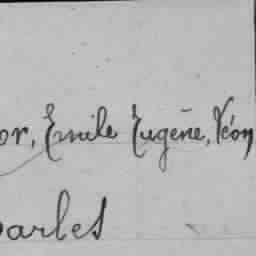 or, Emile Eugène, Léon
arles